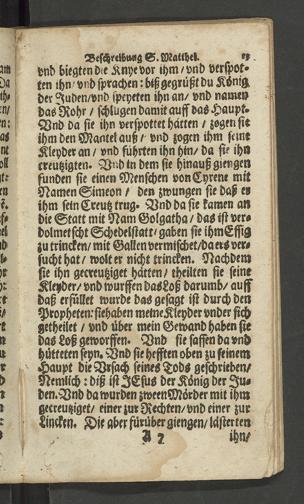 Beschreibung S. Matthei. 13
vnd biegten die Knye vor ihm/ vnd verspot-
ten ihn/ vnd sprachen: biß gegrüßt du König
der Juden/ vnd speyeten ihn an/ vnd namen
das Rohr/ schlugen damit auff das Haupt.
Vnd da sie ihn verspottet hatten/ zogen sie
ihm den Mantel auß/ vnd zogen ihm seine
Kleyder an/ vnd führten ihn hin/ da sie ihn
creutzigten. Vnd in dem sie hinauß giengen
funden sie einen Menschen von Cyrene mit
Namen Simeon/ den zwungen sie daß er
ihm sein Creutz trug. Vnd da sie kamen an
die Statt mit Nam Golgatha/ das ist ver-
dolmetscht Schedelstatt/ gaben sie ihm Essig
zu trincken/ mit Gallen vermischet/ da ers ver-
sucht hat/ wolt er nicht trincken. Nachdem
sie ihn gecreutziget hatten/ theilten sie seine
Kleyder/ vnd wurffen das Loß darumb/ auff
daß erfüllet wurde das gesagt ist durch den
Propheten: sie haben meine Kleyder vnder sich
getheilet/ vnd über mein Gewand haben sie
das Loß geworffen. Vnd sie sassen da vnd
hütteten seyn. Vnd sie hefften oben zu seinem
Haupt die Vrsach seines Tods geschrieben/
Nemlich: diß ist JEsus der König der Ju-
den. Vnd da wurden zween Mörder mit ihm
gecreutziget/ einer zur Rechten/ vnd einer zur
Lincken. Die aber fürüber giengen/ lästerten
A 7 ihn/